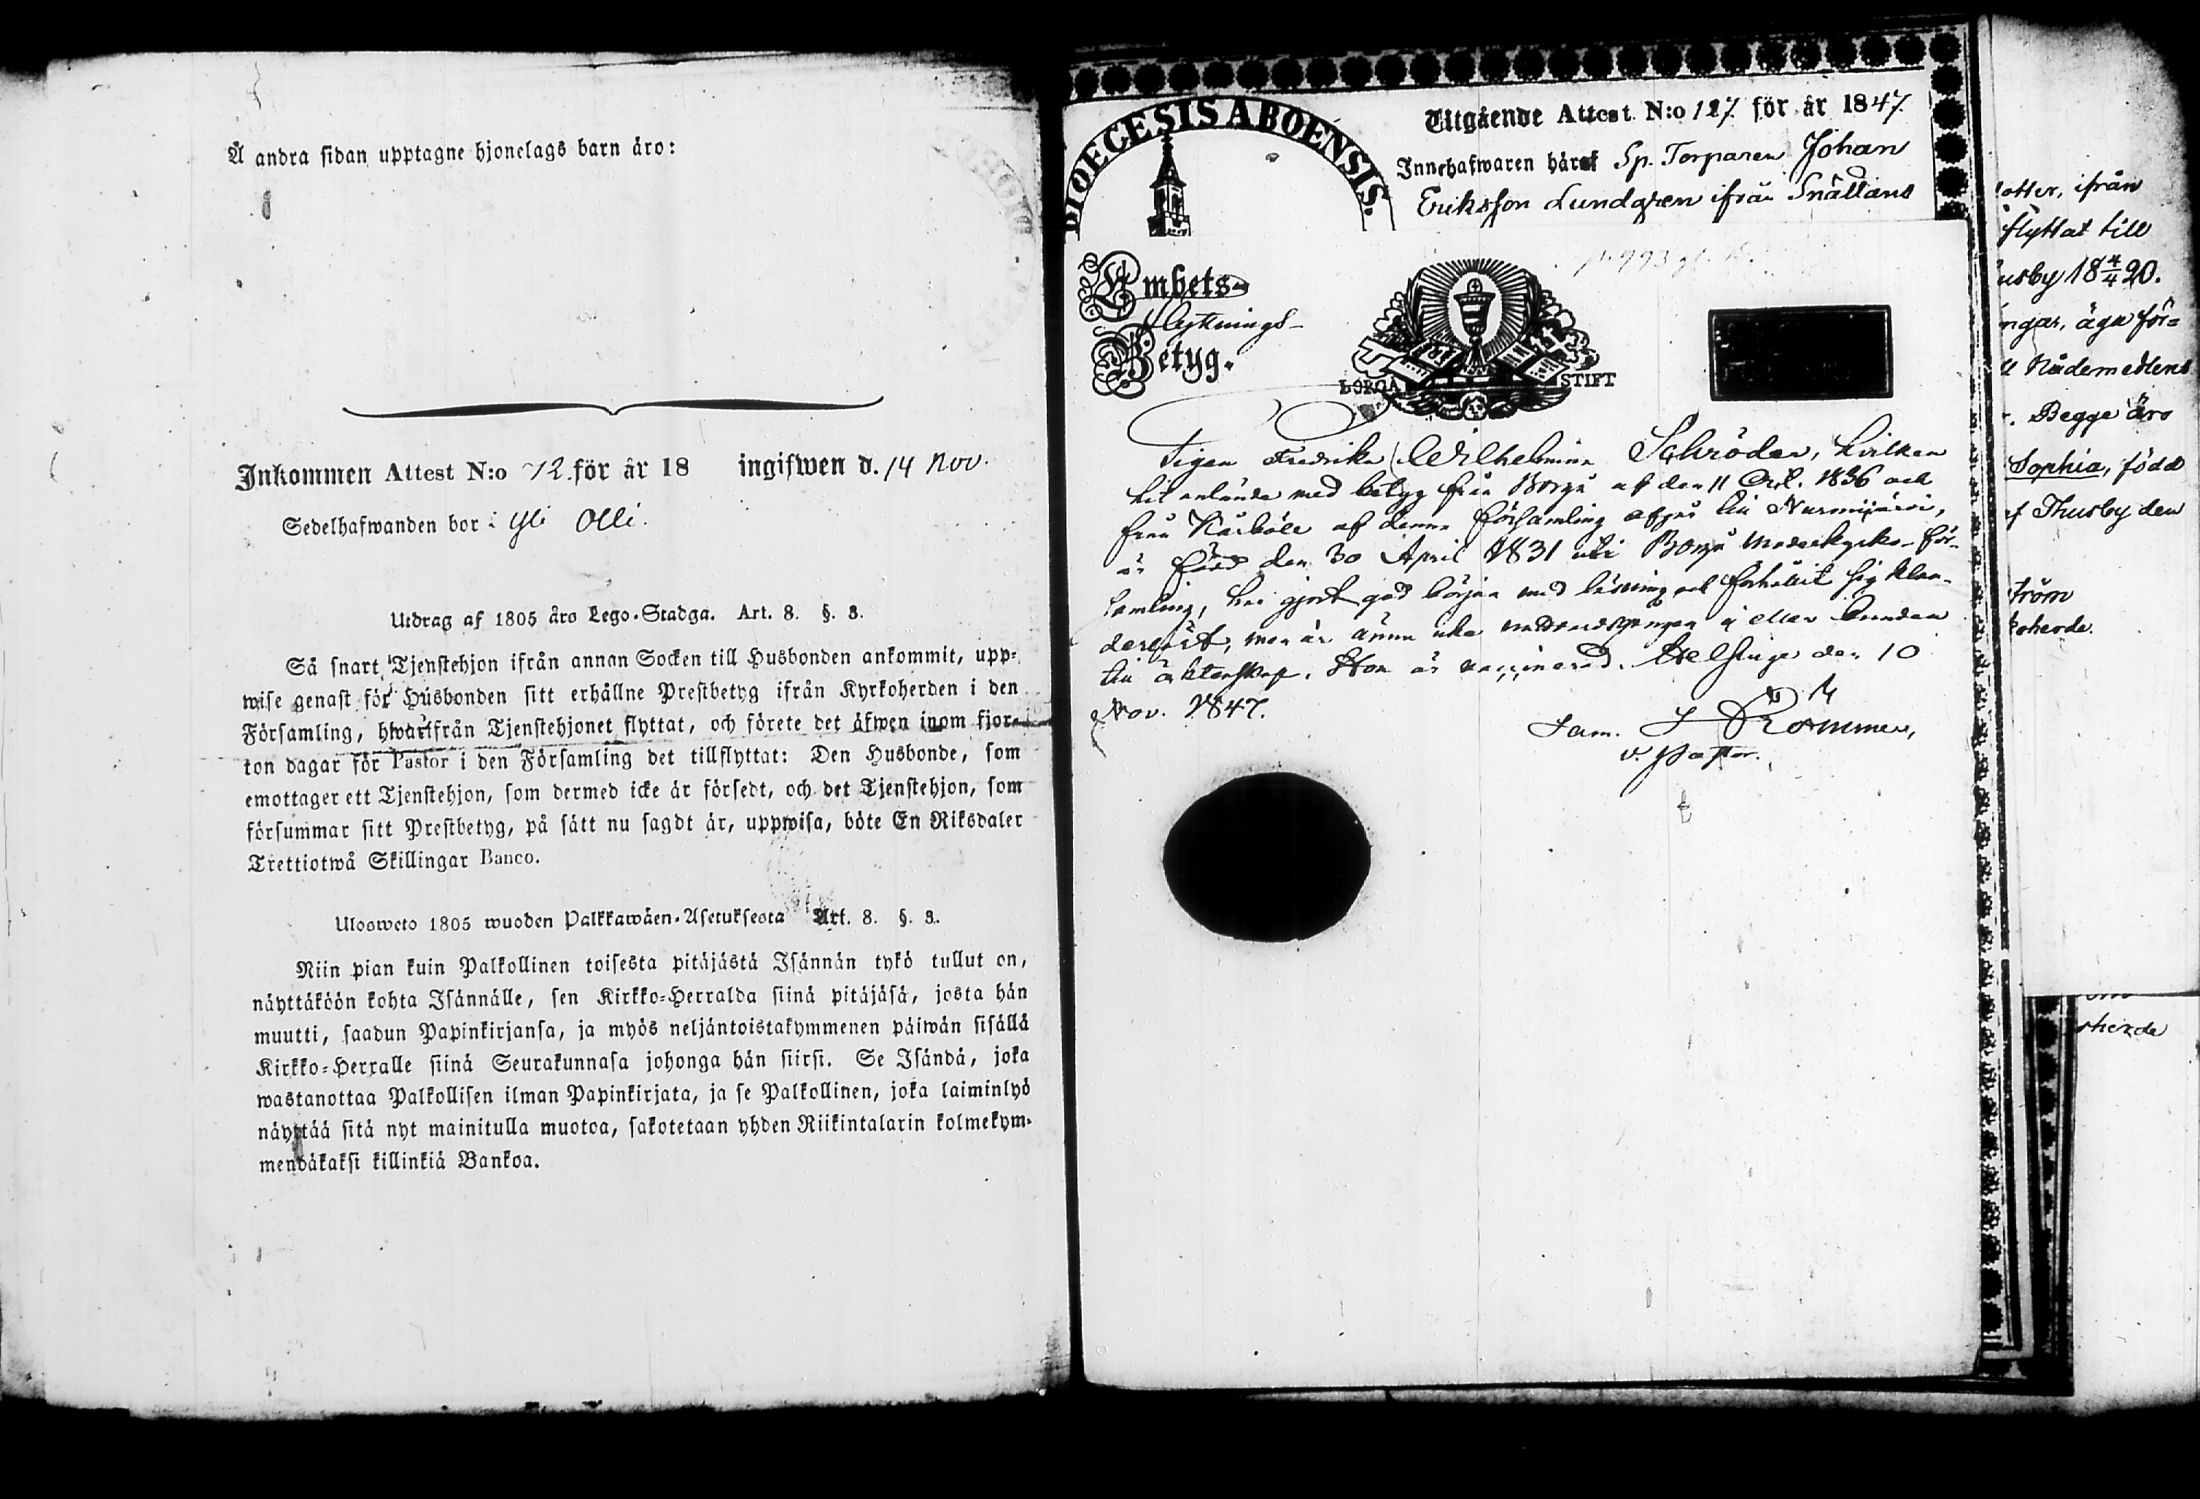 Å andra sidan upptagne hjonelags barn äro:
Inkommen Attest N:o 72. för år 18 ingifwen d. 14 Nov.
Sedelhafwanden bor i Yli Olli.
Utdrag af 1805 års Lego-Stadga. Art. 8. §. 3.
Så snart Tjenstehjon ifrån annan Socken till Husbonden ankommit, upp-
wise genast för Husbonden sitt erhållne Prestbetyg ifrån Kyrkoherden i den
Församling, hwarifrån Tjenstehjonet flyttat, och förete det äfwen inom fjor-
ton dagar för Pastor i den Församling det tillflyttat: Den Husbonde, som
emottager ett Tjenstehjon, som dermed icke är försedt, och det Tjenstehjon, som
försummar sitt Prestbetyg, på sätt nu sagdt är, uppwisa, böte En Riksdaler
Trettiotwå Skillingar Banco.
Ulosweto 1805 wuoden Palkkawäen-Asetuksesta Art. 8. §. 3.
Niin pian kuin Palkollinen toisesta pitäjästä Isännän tykö tullut on,
näyttäköön kohta Isännälle, sen Kirkko-Herralda siinä pitäjäsä, josta hän
muutti, saadun Papinkirjansa, ja myös neljäntoistakymmenen päiwän sisällä
Kirkko-Herralle siinä Seurakunnasa johonga hän siirsi. Se Isändä, joka
wastanottaa Palkollisen ilman Papinkirjata, ja se Palkollinen, joka laiminlyö
näyttää sitä nyt mainitulla muotoa, sakotetaan yhden Riikintalarin kolmekym-
mendäkaksi killinkiä Bankoa.
DIOECESIS ABOENSIS.
Utgående Attest N:o 127 för år 1847.
Innehafwaren häraf Sp. Torparen Johan
Eriksson Lundgren ifrån Snällans
Embets-
flyttnings-
Betyg.
BORGÅ STIFT
Pigan Fredrika Wilhelmina Schröder, hvilken
hit anlände med betyg från Borgå af den 11 Oct. 1836 och
från Kårböle af denna församling afgår till Nurmijärvi,
är född den 30 April 1831 uti Borgå Moderkyrko-för-
samling, har gjort god början med läsning och förhållit sig klan-
derfritt, men är ännu icke nattvardsgången ej eller bunden
till äktenskap. Hon är vaccinerad. Helsinge den 10
Nov. 1847.
Sam. J Rommer,
v. Pastor.
dotter, ifrån
flyttat till
usby 18 4/4 20.
ngar, äga för-
Nådemedlens
. Begge äro
Sophia, född
af Thusby den
tröm
koherde.
oherde